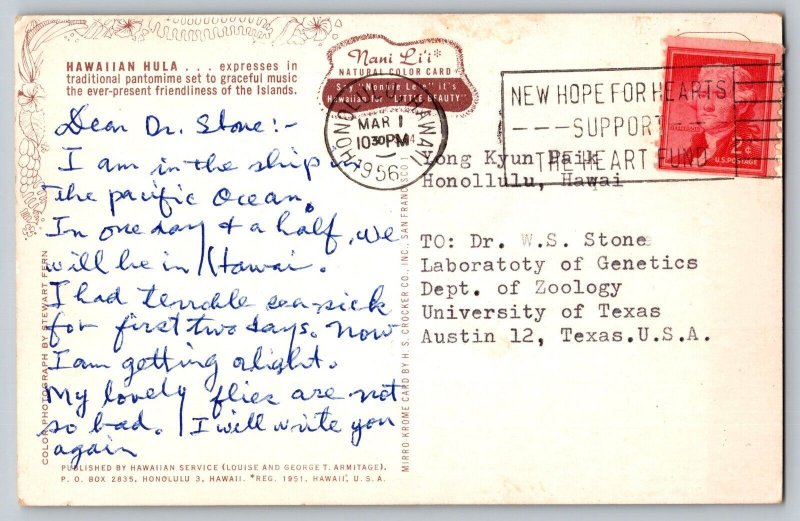 HAWAIIAN HULA . . . expresses in
traditional pantomime set to graceful music
the ever-present friendliness of the Islands.
Dear Dr. Stone:-
I am in the ship in
the pacific Ocean.
In one day & a half, we
will be in Hawai.
I had terrable sea-sick
for first two days. Now
I am getting alight.
My lovely flies are not
so bad. I will write you
again
PUBLISHED BY HAWAIIAN SERVICE (LOUISE AND GEORGE T. ARMITAGE).
P. O. BOX 2835, HONOLULU 3, HAWAII. *REG. 1951, HAWAII, U. S. A.
COLOR PHOTOGRAPH BY STEWART FERN
Nani Li'i*
NATURAL COLOR CARD
Say "Nonnie Lee" it's
Hawaiian for "LITTLE BEAUTY"
HONOLULU HAWAII
MAR 1
10 30 PM
1956
MIRRO-KROME CARD BY H. S. CROCKER CO., INC., SAN FRANCISCO 1
NEW HOPE FOR HEARTS
---SUPPORT
THE HEART FUND
JEFFERSON
2¢
U.S. POSTAGE
Yong Kyun Paik
Honollulu, Hawai
TO: Dr. W.S. Stone
Laboratoty of Genetics
Dept. of Zoology
University of Texas
Austin 12, Texas.U.S.A.